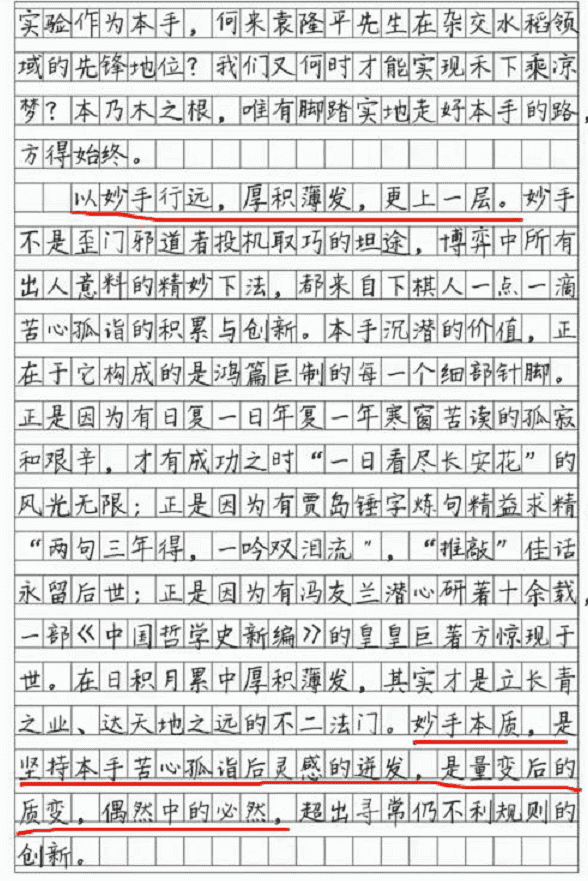 实验作为本手，何来袁隆平先生在杂交水稻领
域的先锋地位？我们又何时才能实现禾下乘凉
梦？本乃木之根，唯有脚踏实地走好本手的路，
方得始终。
以妙手行远，厚积薄发，更上一层。妙手
不是歪门邪道者投机取巧的坦途，博弈中所有
出人意料的精妙下法，都来自下棋人一点一滴
苦心孤诣的积累与创新。本手沉潜的价值，正
在于它构成的是鸿篇巨制的每一个细部针脚。
正是因为有日复一日年复一年寒窗苦读的孤寂
和艰辛，才有成功之时“一日看尽长安花”的
风光无限；正是因为有贾岛锤字炼句精益求精
“两句三年得，一吟双泪流”，“推敲”佳话
永留后世；正是因为有冯友兰潜心研著十余载，
一部《中国哲学史新编》的皇皇巨著方惊现于
世。在日积月累中厚积薄发，其实才是立长青
之业、达天地之远的不二法门。妙手本质，是
坚持本手苦心孤诣后灵感的迸发，是量变后的
质变，偶然中的必然，超出寻常仍不利规则的
创新。